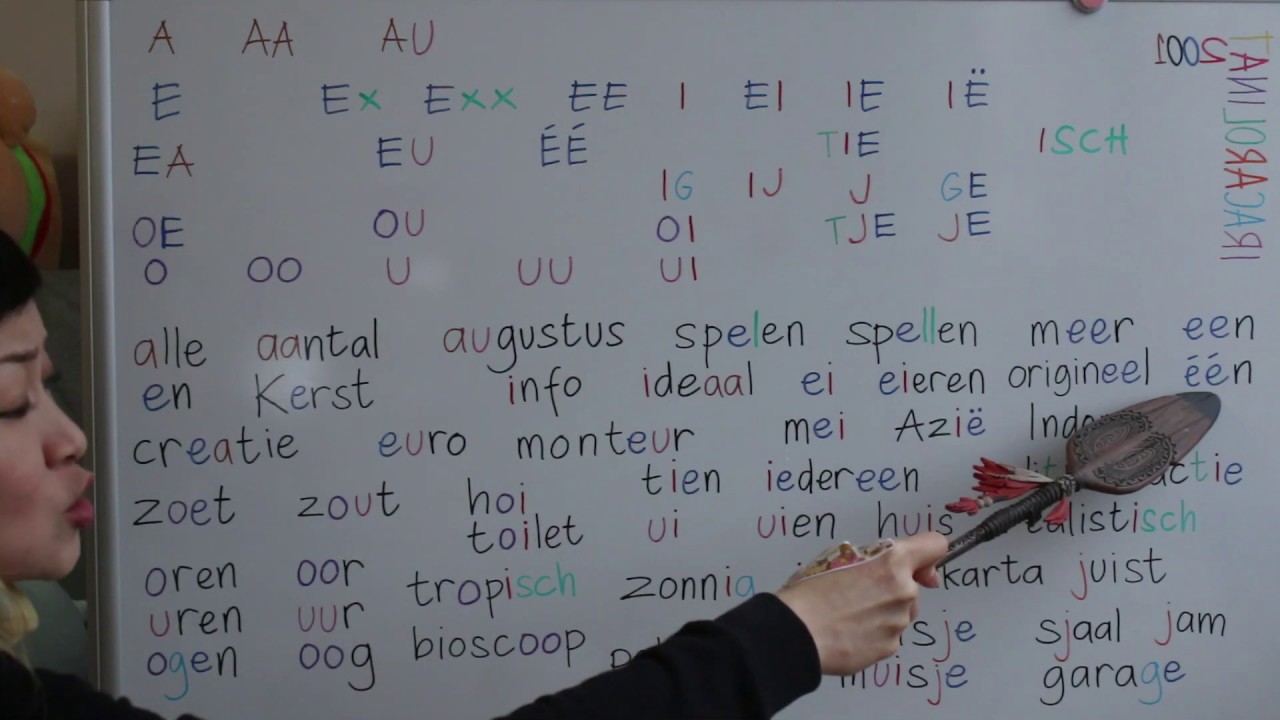 A AA AU
E Ex Exx EE I EI IE IË
EA EU ÉÉ TIE ISCH
IG IJ J GE
OE OU OI TJE JE
O OO U UU UI
alle aantal augustus spelen spellen meer een
en Kerst info ideaal ei eieren origineel één
creatie euro monteur mei Azië
zoet zout hoi tien iedereen
toilet ui uien huis
oren oor tropisch juist
uren uur sjaal jam
ogen oog bioscoop muisje garage
2001
IRACAROLINAT